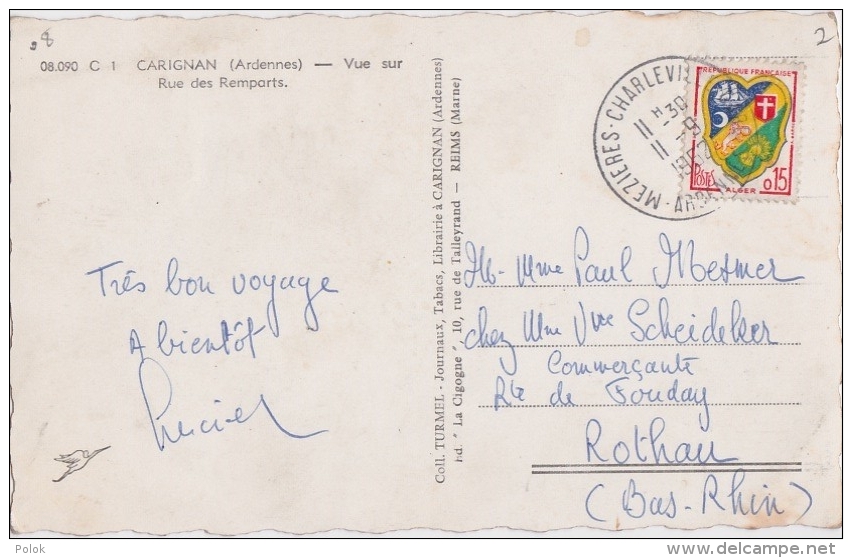 8
2
08.090 C 1 CARIGNAN (Ardennes) — Vue sur
Rue des Remparts.
Très bon voyage
A bientôt
Coll. TURMEL - Journaux, Tabacs, Librairie à CARIGNAN (Ardennes)
Ed. " La Cigogne ", 10, rue de Talleyrand — REIMS (Marne)
MEZIERES-CHARLEVILLE
11 H 30
11
ARDENNES
REPUBLIQUE FRANÇAISE
POSTES
0,15
ALGER
M. Mme Paul Mesmer
chez Mme Vve Scheideker
Commerçante
Rte de Fouday
Rothau
(Bas-Rhin)
Polok
www.delcampe.net